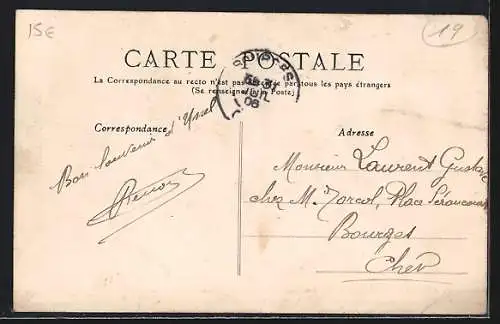 15€
19
CARTE POSTALE
La Correspondance au recto n'est pas acceptée par tous les pays étrangers
(Se renseigner à la Poste)
Correspondance
Adresse
Bon Souvenir d'Ussel
Monsieur Laurent Gustave
chez M. Marcol, Place Séraucourt
Bourges
Cher